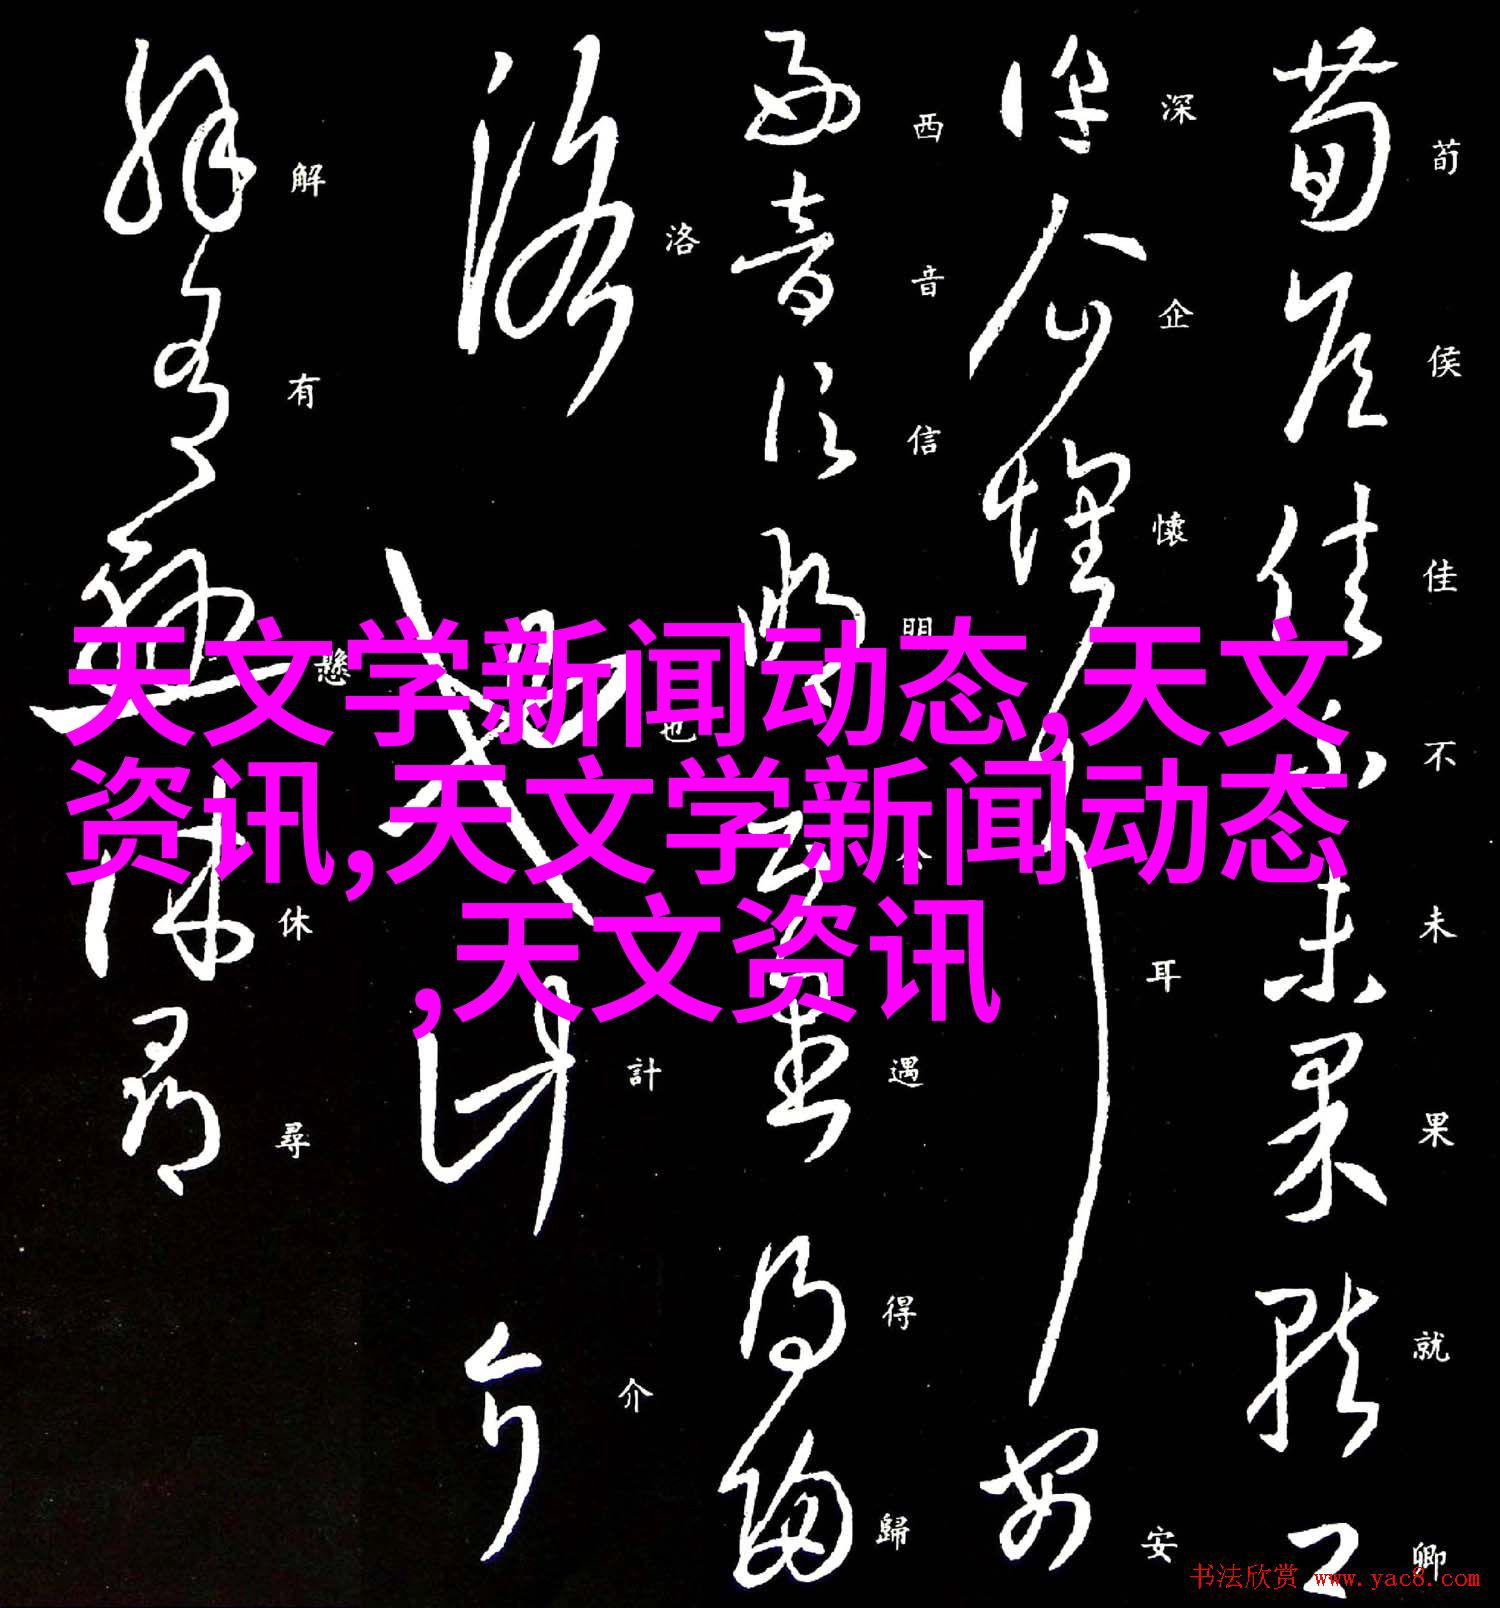 荀侯佳不未果就卿
深企懷耳安
西音信明今遇得歸
洛也計介
解有懸休尋
天文学新闻动态,天文
资讯,天文学新闻动态
,天文资讯
书法欣赏 www.yac8.com